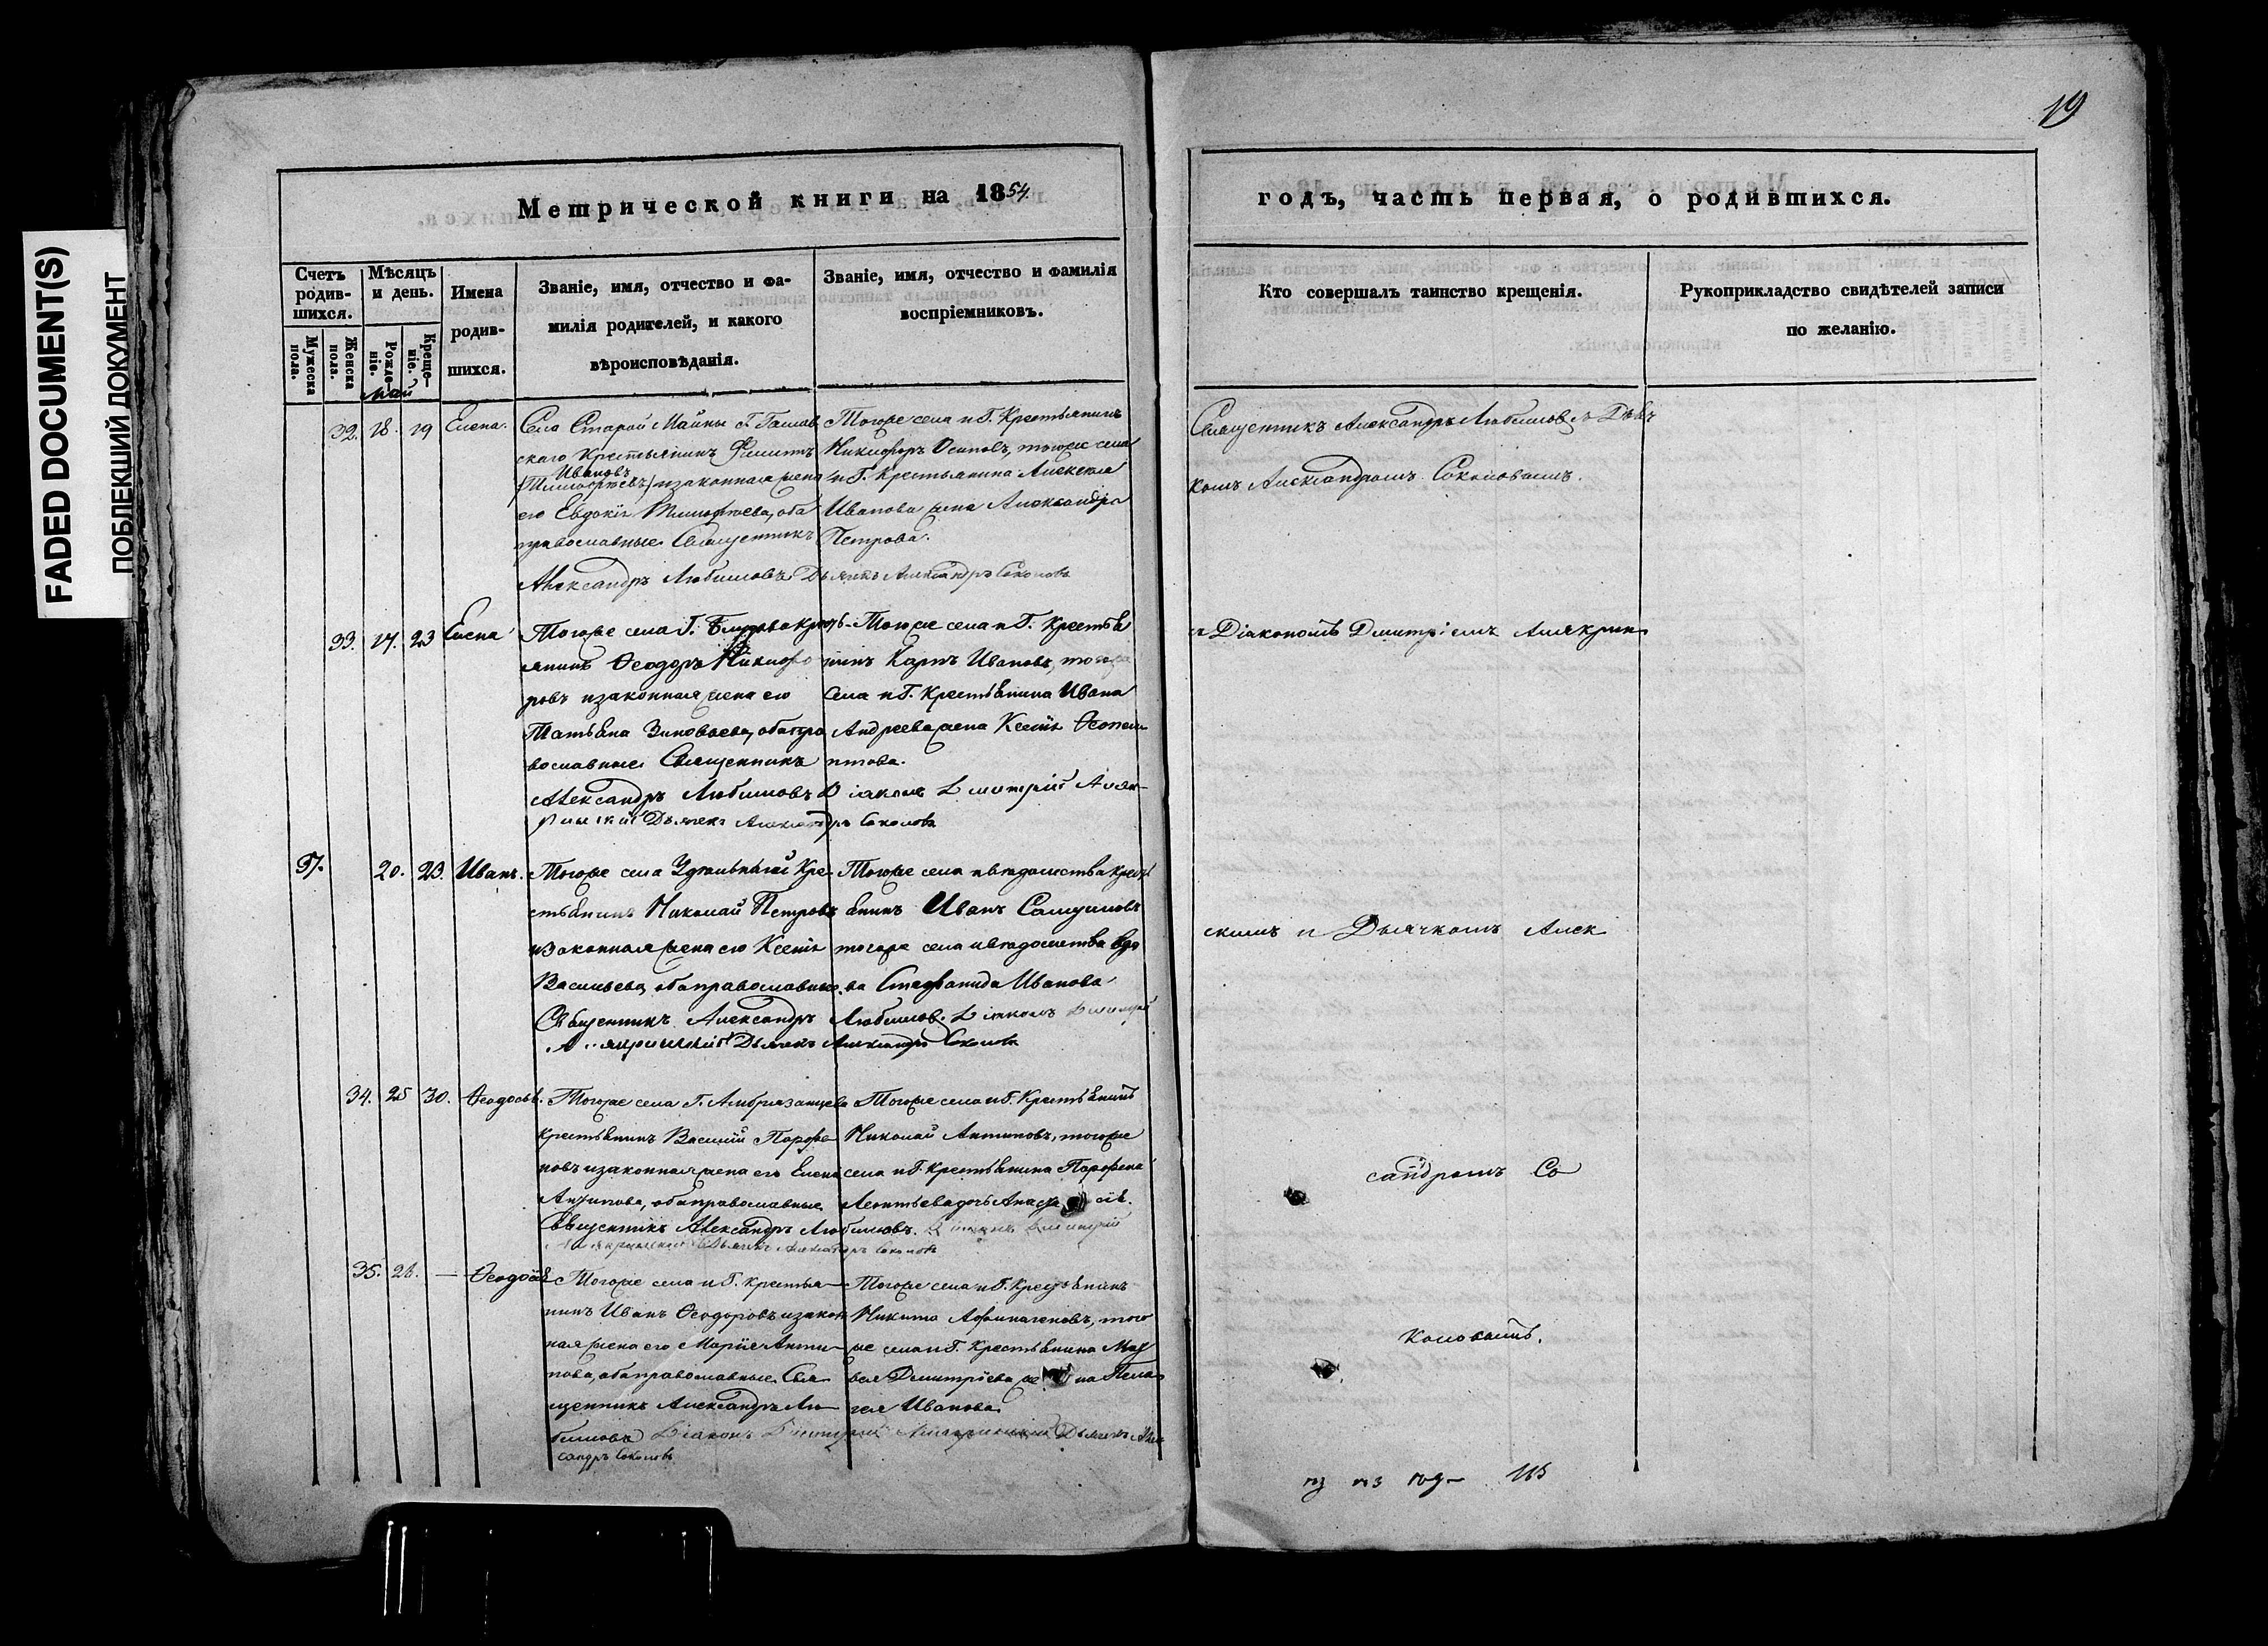 19
FADED DOCUMENT(S)
ПОБЛЕКШИЙ ДОКУМЕНТ
Метрической книги на 1854.
годъ, часть первая, о родившихся.
Счетъ родив-шихся.
Мужеска пола.
Женска пола.
Мѣсяцъ и день.
Рожде-ніе.
Креще-ніе.
Имена
родив-
шихся.
Званіе, имя, отчество и фа-
милія родителей, и какого
вѣроисповѣданія.
Званіе, имя, отчество и фамилія
воспріемниковъ.
Кто совершалъ таинство крещенія.
Рукоприкладство свидѣтелей записи
по желанію.
Май
32. 18. 19 Елена.
Села Старой Майны Г.
скаго Крестьянинъ Филипъ
Ивановъ
(Тимофѣевъ) и законная жена
его Евдокія Тимофѣева, оба
православные. Священникъ
Александръ Любимовъ Дьячекъ Александръ Соколовъ
Тогоже села и Г. Крестьянинъ
Никифоръ Осиповъ, тогоже села
и Г. Крестьянина Алексея
Иванова жена Александра
Петрова.
Священникъ Александръ Любимовъ съ Дьяч
комъ Александромъ Соколовымъ.
33. 17. 23 Елена
Тогоже села Г.
янинъ Ѳеодоръ Никифо
ровъ и законная жена его
Татьяна Зиновьева, оба пра
вославные Священникъ
Александръ Любимовъ Діаконъ Дмитрій Аляк-
ринскій Дьячекъ Александръ Соколовъ
Тогоже села и Г. Крестья
нинъ Карпъ Ивановъ, тогоже
села и Г. Крестьянина Ивана
Андреева жена Ксенія Ѳеопем
птова.
съ Діакономъ Дмитріемъ Алякрин
37. 20. 23. Иванъ.
Тогоже села Удѣльный Кре
стьянинъ Николай Петровъ
и законная жена его Ксенія
Васильева, оба православные.
Священникъ Александръ Любимовъ. Діаконъ Дмитрій
Алякринскій Дьячекъ Александръ Соколовъ
Тогоже села и вѣдомства крест
янинъ Иванъ Самуиловъ
тогоже села и вѣдомства вдо
ва Стефанида Иванова
скимъ и Дьячкомъ Алек
34. 25 30. Ѳеодосья.
Тогоже села Г. Амбразанцева
крестьянинъ Василій Парфе
новъ и законная жена его Елена
Антипова, оба православные
Священникъ Александръ Любимовъ. Діаконъ Дмитрій
Алякринскій Дьячекъ Александръ Соколовъ
Тогоже села и Г. Крестьянинъ
Николай Антиповъ, тогоже
села и Г. Крестьянина Парфена
Леонтьева дочь
сандромъ Со
35. 28. — Ѳеодосія
Тогоже села и Г. крестья
нинъ Иванъ Ѳеодоровъ и закон
ная жена его Марія Анти
пова, оба православные. Свя
щенникъ Александръ Лю
бимовъ Діаконъ Дмитрій Алякринскій Дьячекъ Алек
сандръ Соколовъ
Тогоже села и Г. Крестьянинъ
Никита Афиногеновъ, того
же села и Г. Крестьянина Мат
вея Дмитріева жена Пела
гея Иванова.
коловымъ.